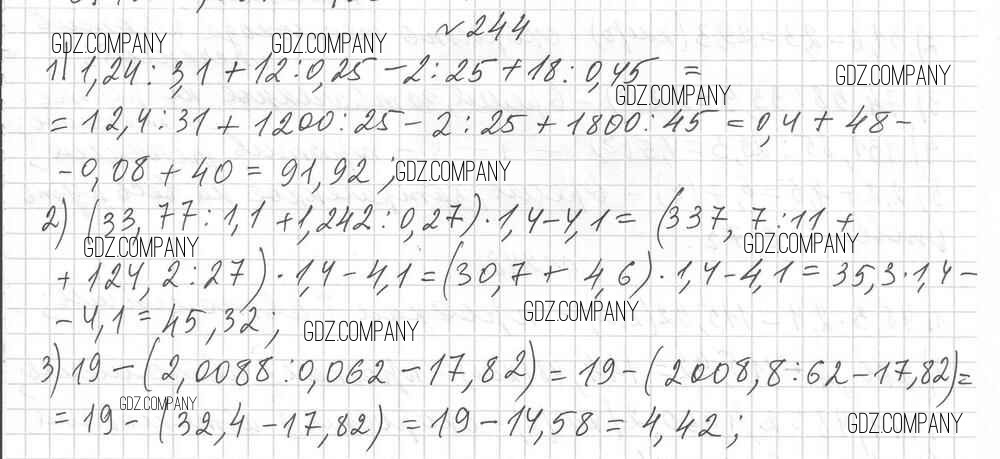 № 244
GDZ.COMPANY GDZ.COMPANY
1) 1,24 : 3,1 + 12 : 0,25 - 2 : 25 + 18 : 0,45 =
GDZ.COMPANY GDZ.COMPANY
= 12,4 : 31 + 1200 : 25 - 2 : 25 + 1800 : 45 = 0,4 + 48 -
- 0,08 + 40 = 91,92 ; GDZ.COMPANY
2) (33,77 : 1,1 + 1,242 : 0,27) · 1,4 - 4,1 = (337,7 : 11 +
GDZ.COMPANY GDZ.COMPANY
+ 124,2 : 27) · 1,4 - 4,1 = (30,7 + 4,6) · 1,4 - 4,1 = 35,3 · 1,4 -
- 4,1 = 45,32 ; GDZ.COMPANY GDZ.COMPANY
3) 19 - (2,0088 : 0,062 - 17,82) = 19 - (2008,8 : 62 - 17,82) =
GDZ.COMPANY
= 19 - (32,4 - 17,82) = 19 - 14,58 = 4,42 ; GDZ.COMPANY